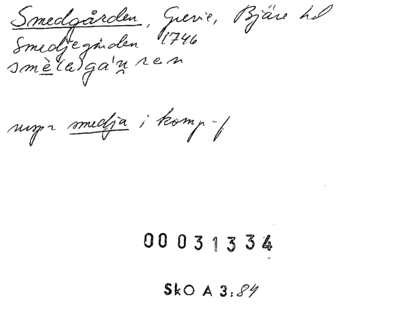 Smedgården, Grevie, Bjäre hd
Smedjegården 1746
smedja i komp.-f
00 031334
SkO A 3:84